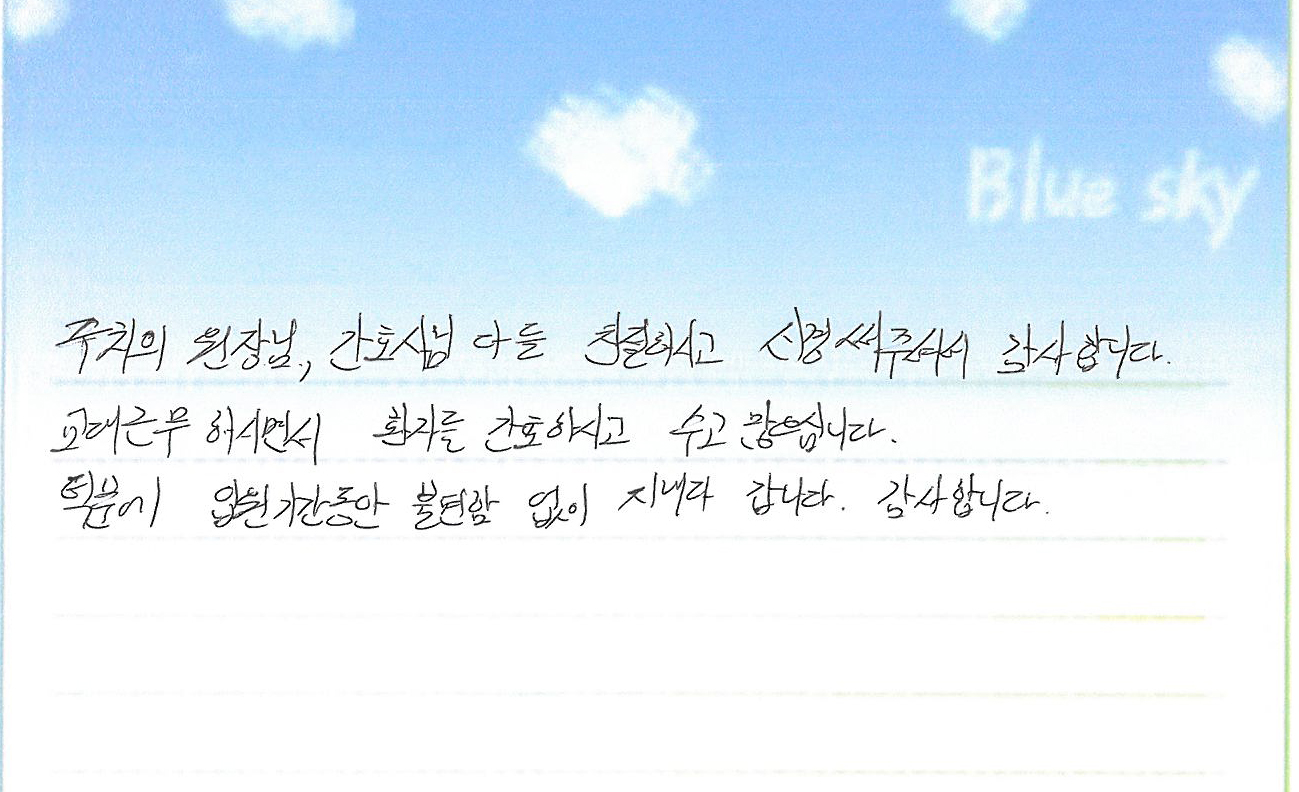 Blue sky
주치의 원장님, 간호사님 다들 친절하시고 신경써주셔서 감사합니다.
교대근무 하시면서 환자를 간호하시고 수고 많으십니다.
덕분에 입원기간동안 불편함 없이 지내다 갑니다. 감사합니다.